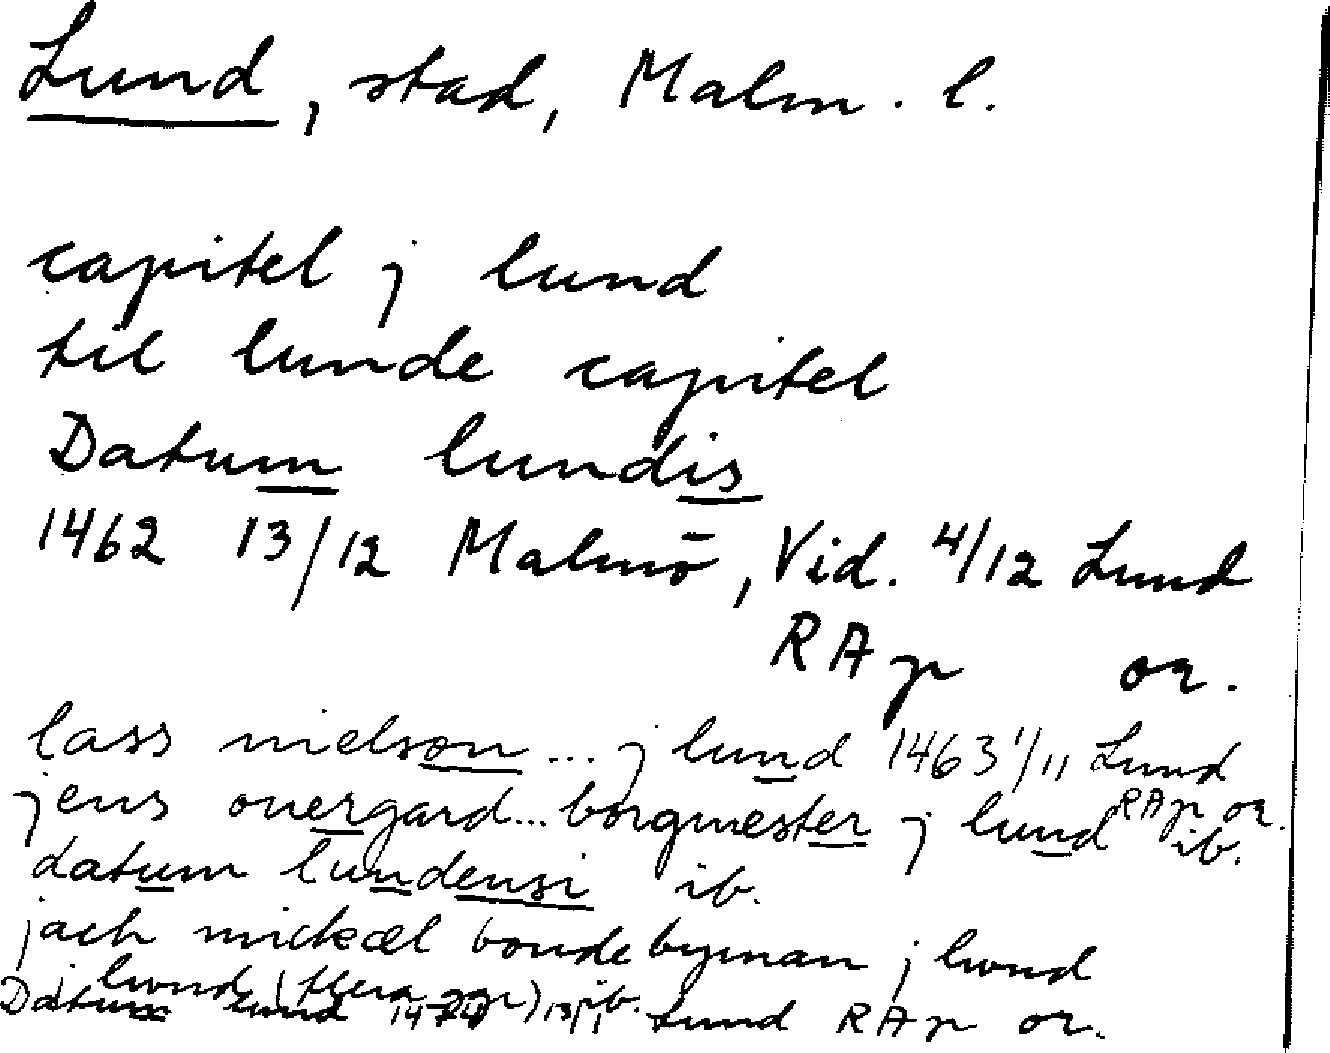 Lund, stad, Malm. l.
capitel j lund
til lunde capitel
Datum lundis
1462 13/12 Malmö, Vid. 4/12 Lund
RAp or.
lass nielson... j lund 1463 1/11 Lund
RAp or.
jens ouergard... borgmester j lund ib.
datum lundensi ib.
jach mickæl bonde byman j lwnd
j lwnd (flera ggr) ib.
Datum lund 13/1 Lund RAp or.